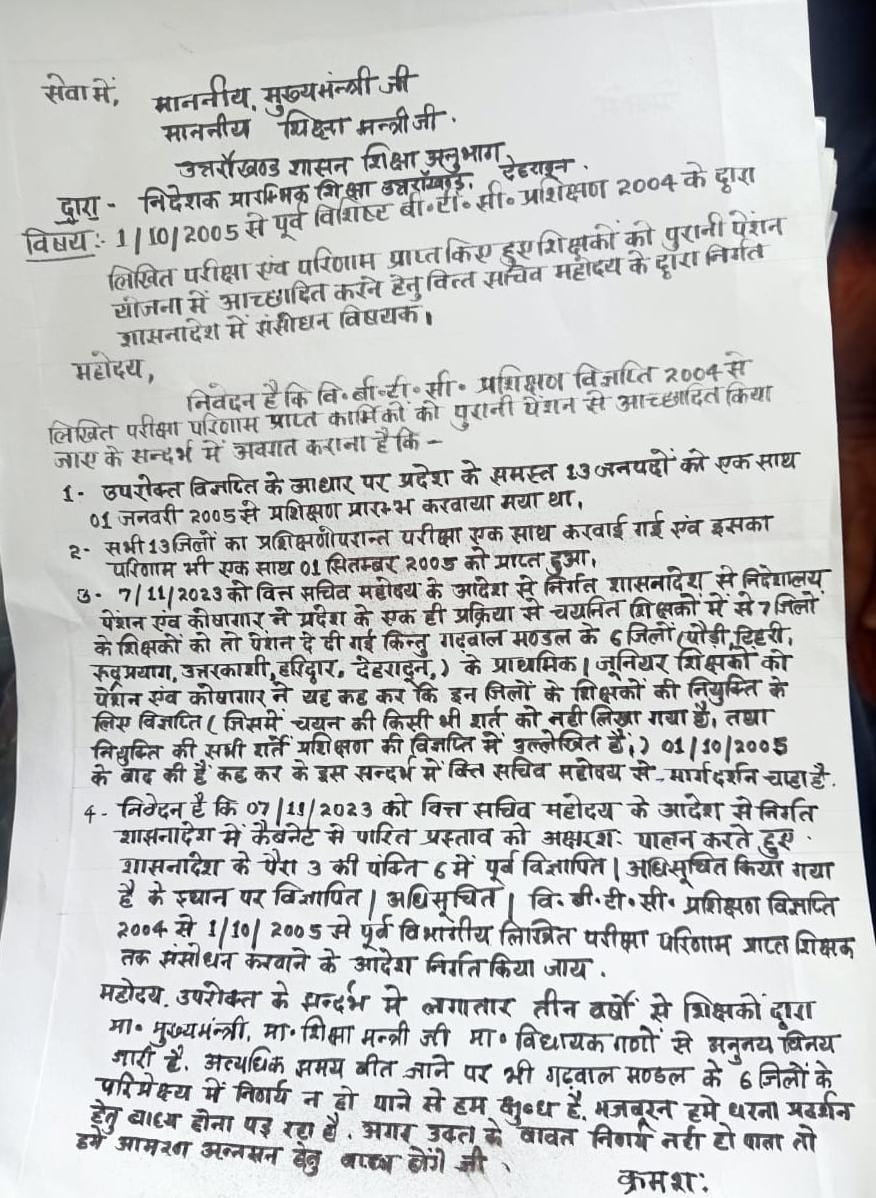 सेवा में,
माननीय, मुख्यमंत्री जी
माननीय शिक्षा मन्त्री जी.
उत्तराखण्ड शासन शिक्षा अनुभाग, देहरादून.
द्वारा - निदेशक प्रारम्भिक शिक्षा उत्तराखण्ड,
विषय:- 1/10/2005 से पूर्व विशिष्ट बी॰टी॰सी॰ प्रशिक्षण 2004 के द्वारा
लिखित परीक्षा एंव परिणाम प्राप्त किए हुए शिक्षकों को पुरानी पेंशन
योजना में आच्छादित करने हेतु वित्त सचिव महोदय के द्वारा निर्गत
शासनादेश में संसोधन विषयक।
महोदय,
निवेदन है कि वि॰बी॰टी॰सी॰ प्रशिक्षण विज्ञप्ति 2004 से
लिखित परीक्षा परिणाम प्राप्त कार्मिकों को पुरानी पेंशन से आच्छादित किया
जाए के सन्दर्भ में अवगत कराना है कि -
1- उपरोक्त विज्ञप्ति के आधार पर प्रदेश के समस्त 13 जनपदों को एक साथ
01 जनवरी 2005 से प्रशिक्षण प्रारम्भ करवाया गया था,
2- सभी 13 जिलों का प्रशिक्षणोपरान्त परीक्षा एक साथ करवाई गई एंव इसका
परिणाम भी एक साथ 01 सितम्बर 2005 को प्राप्त हुआ,
3- 7/11/2023 को वित्त सचिव महोदय के आदेश से निर्गत शासनादेश से निदेशालय
पेंशन एंव कोषागार ने प्रदेश के एक ही प्रक्रिया से चयनित शिक्षकों में से 7 जिलों
के शिक्षकों को तो पेंशन दे दी गई किन्तु गढ़वाल मण्डल के 6 जिलों (पौड़ी, टिहरी,
रुद्रप्रयाग, उत्तरकाशी, हरिद्वार, देहरादून,) के प्राथमिक | जूनियर शिक्षकों को
पेंशन एंव कोषागार ने यह कह कर कि इन जिलों के शिक्षकों की नियुक्ति के
लिए विज्ञप्ति (जिसमें चयन की किसी भी शर्त को नही लिखा गया है, तथा
नियुक्ति की सभी शर्तें प्रशिक्षण की विज्ञप्ति में उल्लेखित हैं,) 01/10/2005
के बाद की हैं कह कर के इस सन्दर्भ में वित्त सचिव महोदय से मार्गदर्शन चाहा है.
4- निवेदन है कि 07/11/2023 को वित्त सचिव महोदय के आदेश से निर्गत
शासनादेश में कैबनेट से पारित प्रस्ताव को अक्षरश: पालन करते हुए
शासनादेश के पैरा 3 की पंक्ति 6 में पूर्व विज्ञापित | अधिसूचित किया गया
है के स्थान पर विज्ञापित | अधिसूचित | वि॰बी॰टी॰सी॰ प्रशिक्षण विज्ञप्ति
2004 से 1/10/2005 से पूर्व विभागीय लिखित परीक्षा परिणाम प्राप्त शिक्षक
तक संसोधन करवाने के आदेश निर्गत किया जाय.
महोदय, उपरोक्त के सन्दर्भ मे लगातार तीन वर्षों से शिक्षकों द्वारा
मा॰ मुख्यमंत्री, मा॰ शिक्षा मन्त्री जी मा॰ विधायक गणों से अनुनय विनय
जारी है, अत्यधिक समय बीत जाने पर भी गढ़वाल मण्डल के 6 जिलों के
परिप्रेक्ष्य में निर्णय न हो पाने से हम क्षुब्ध है, मजबूरन हमे धरना प्रदर्शन
हेतु बाध्य होना पड़ रहा है, अगर उक्त के बावत निर्णय नही हो पाता तो
हमें आमरण अन्नसन हेतु बाध्य होंगे जी,
क्रमश: